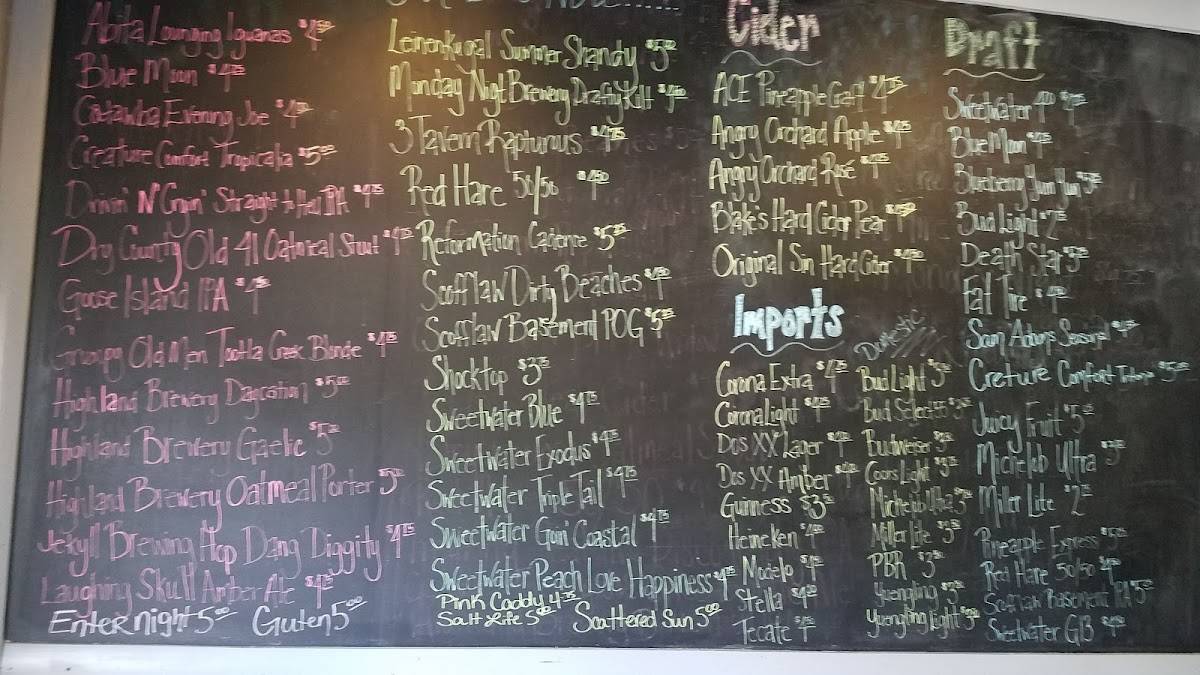 Abita Lounging Iguanas $4.50
Blue Moon $4.75
Catawba Evening Joe $4.50
Creature Comfort Tropicalia $5.00
Drivin' N' Cryin' Straight to Hell IPA $4.75
Dry County Old 41 Oatmeal Stout
Goose Island IPA
Grumpy Old Men Tootla Creek Blonde $4.75
Highland Brewery Daycation $5.00
Highland Brewery Gaelic $5.00
Highland Brewery Oatmeal Porter $5.00
Jekyll Brewing Hop Dang Diggity $4.75
Laughing Skull Amber Ale $4.75
Enter night 5.00 Guten 5.00
Leinenkugal Summer Shandy $5.00
Monday Night Brewery Drafty Kilt $4.50
3 Tavern Rapturous $4.75
Red Hare 50/50 $4.50
Reformation Cadence
Scofflaw Dirty Beaches $4.50
Scofflaw Basement POG
Shocktop
Sweetwater Blue $4.75
Sweetwater Exodus $4.75
Sweetwater Triple Tail $4.75
Sweetwater Goin' Coastal $4.75
Sweetwater Peach Love Happiness $4.75
Pink Caddy 4.75
Salt Life 5.00 Scattered Sun 5.00
Cider
ACE Pineapple Craft $4.75
Angry Orchard Apple
Angry Orchard Rosé $4.75
Blake's Hard Cider Pear $4.50
Original Sin Hard Cider $4.50
Imports
Corona Extra $4.75
Corona Light $4.75
Dos XX Lager
Dos XX Amber
Guinness
Heineken
Modelo
Stella
Tecate
Domestic
Bud Light
Bud Select 55
Budweiser
Coors Light
Michelob Ultra
Miller Lite
PBR
Yuengling
Yuengling Light
Draft
Sweetwater 420
Blue Moon
Blueberry Yum Yum
Bud Light
Death Star
Fat Tire
Sam Adams Seasonal
Creture Comfort
Juicy Fruit
Michelob Ultra
Miller Lite
Pineapple Express
Red Hare 50/50
Scofflaw Basement IPA
Sweetwater G13